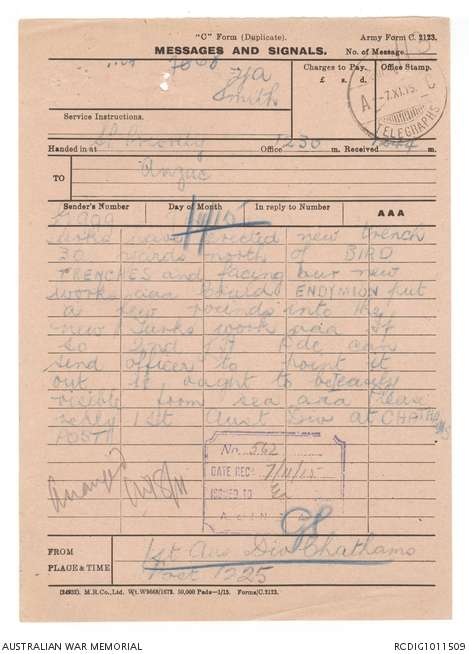 "C" Form (Duplicate).
Army Form C. 2123.
MESSAGES AND SIGNALS.
No. of Message
Charges to Pay.
£ s. d.
Office Stamp.
Smith
A
-7.XI.15.
C
TELEGRAPHS
Service Instructions.
Priority
Handed in at
Office 1230 m. Received 1244 m.
TO
Anzac
Sender's Number
Day of Month
In reply to Number
AAA
G.909
7/11/15
Turks have erected new trench
30 yards north of BIRD
TRENCHES and facing our new
works aaa Could ENDYMION put
a few rounds into the
new Turks work aaa If
so 2nd LH Bde can
send officer to point it
out It ought to be easily
visible from sea aaa Please
reply 1st Aust Div at CHATHAMS
POST
Arranged
8/11
No. 562
DATE REC: 7/11/15
ISSUED TO
FROM
PLACE & TIME
1st Aus Div Chathams
Post 1225
(24932). M.R.Co., Ltd. Wt. W9668/1673. 50,000 Pads—1/15. Forms/C.2123.
AUSTRALIAN WAR MEMORIAL
RCDIG1011509